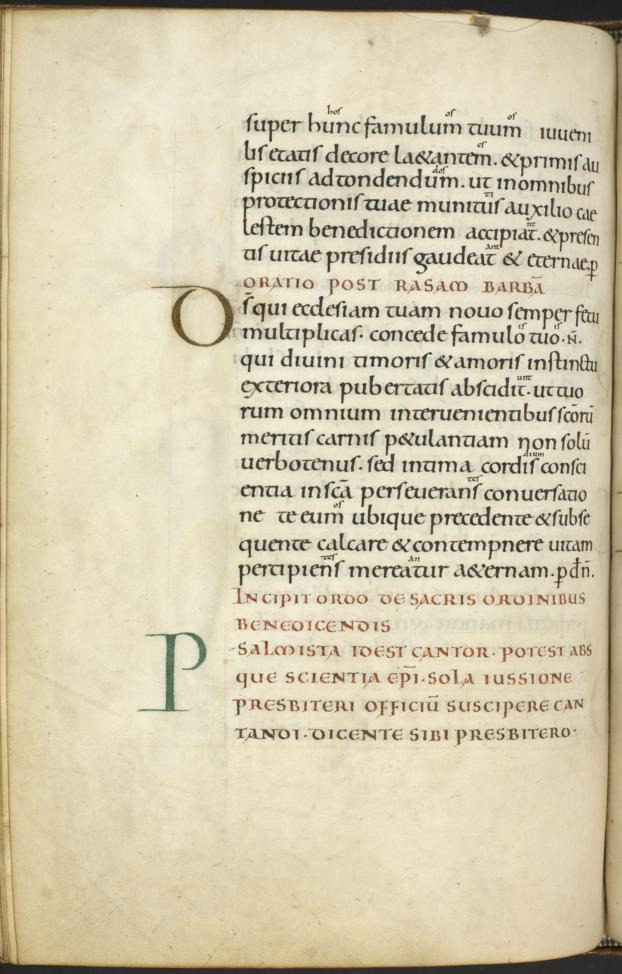 super hunc famulum tuum iuueni
lis etatis decore la&antem. &primis au
spiciis adtondendum. ut inomnibus
protectionis tuae munitus auxilio cae
lestem benedictionem accipiat. &presen
tis uitae presidiis gaudeat & eternae. p
ORATIO POST RASAM BARBĀ
Ds̄ qui ecclesiam tuam nouo semper fetu
multiplicas. concede famulo tuo .N̄.
qui diuini timoris &amoris instinctu
exteriora pubertatis abscidit. ut tuo
rum omnium interuenientibus scōrū
meritis carnis p&ulantiam non solū
uerbotenus. sed intima cordis consci
entia in scā perseuerans conuersatio
ne te eum ubique precedente &subse
quente calcare &contempnere uitam
percipiens mereatur a&ernam. p dn̄.
INCIPIT ORDO DE SACRIS ORDINIBUS
BENEDICENDIS
PSALMISTA IDEST CANTOR. POTEST ABS
QUE SCIENTIA EPĪ. SOLA IUSSIONE
PRESBITERI OFFICIŪ SUSCIPERE CAN
TANDI. DICENTE SIBI PRESBITERO.